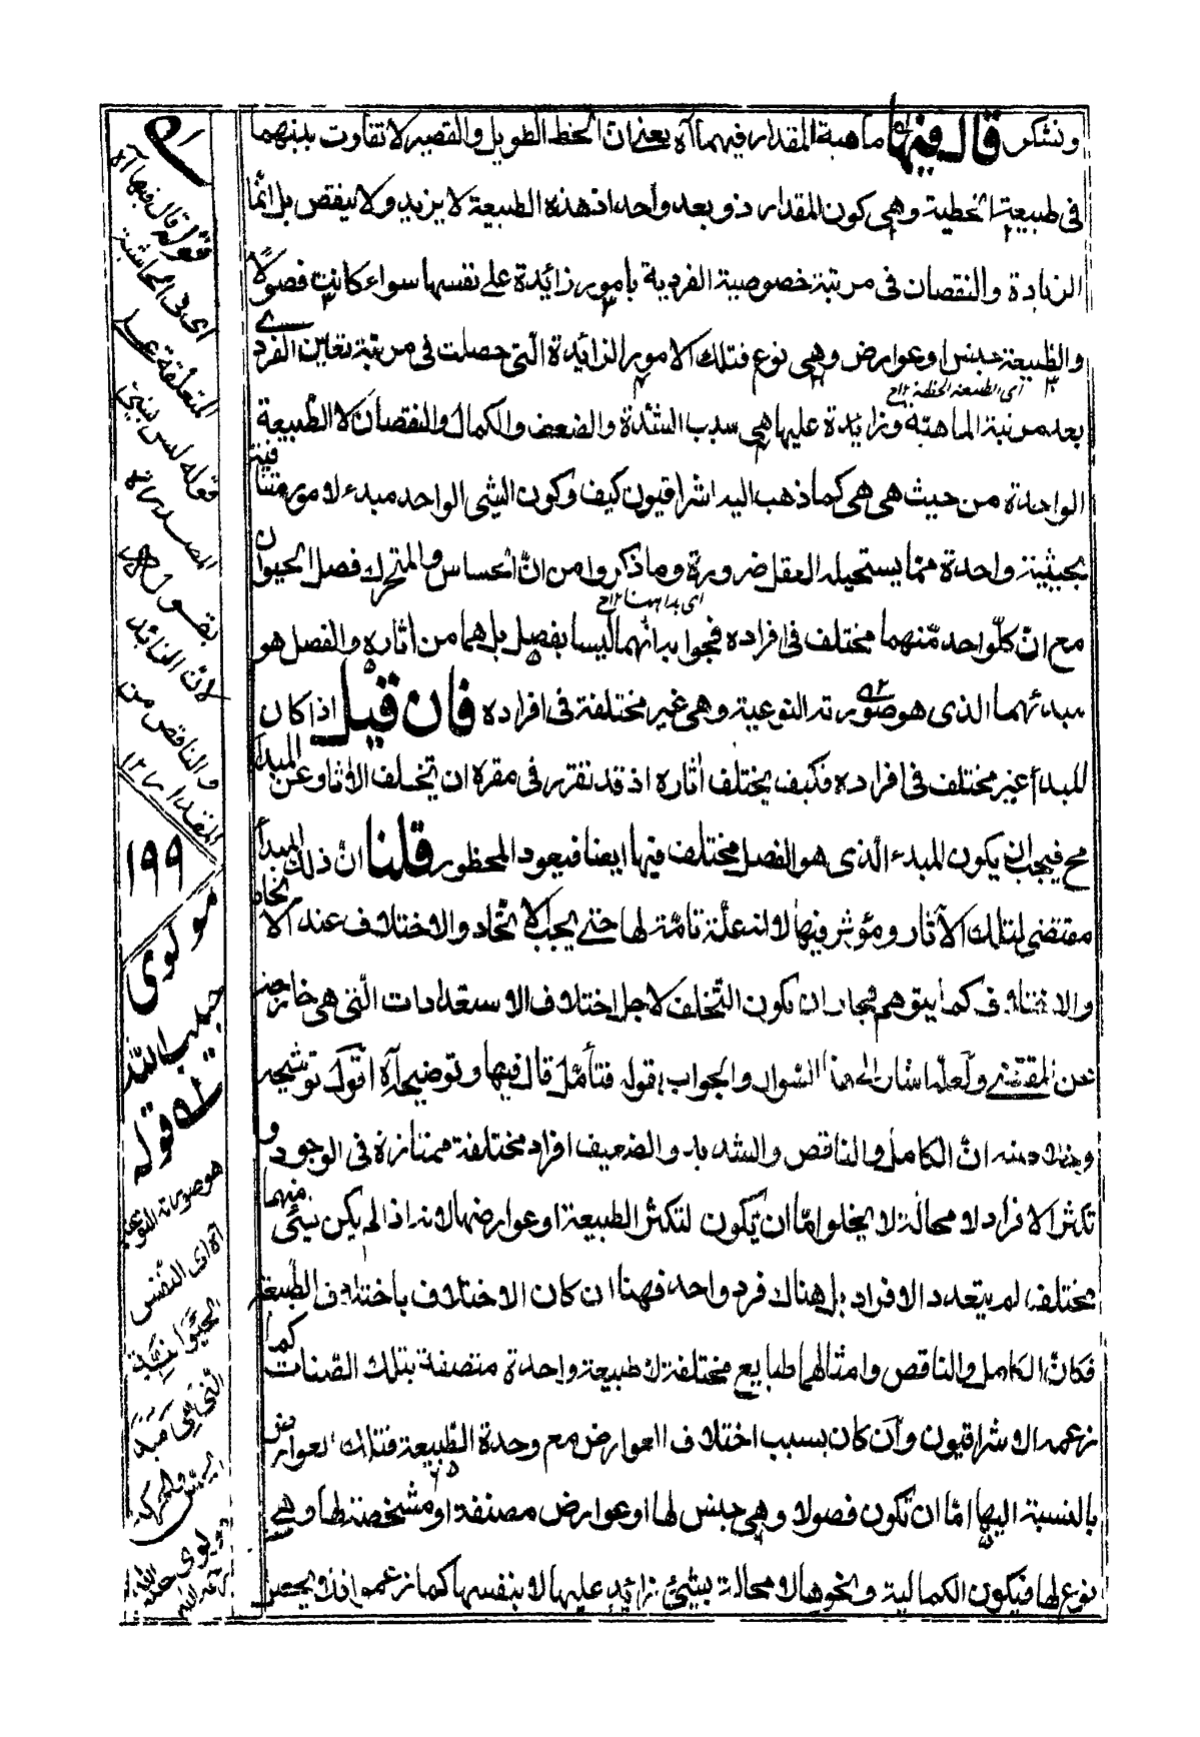 ونشكر قال فيها ماهية المقدار فيهما آه يعنى ان الخط الطويل والقصير لا تفاوت بينهما
فى طبيعة الخطية وهى كون المقدار ذو بعد واحد اذ هذه الطبيعة لا يزيد ولا ينقص بل انما
الزيادة والنقصان فى مرتبة خصوصية الفردية بامور زائدة على نفسها سواء كانت فصولا
والطبيعة جنس او عوارض وهى نوع فتلك الامور الزائدة التى حصلت فى مرتبة تعين الفردى
اى الطبيعة الجنسية ١٢ ح
بعد مرتبة الماهية وزائدة عليها هى سبب الشدة والضعف والكمال والنقصان لا الطبيعة
الواحدة من حيث هى هى كما ذهب اليه اشراقيون كيف وكون الشئ الواحد مبدء لامور متنافية
بحيثية واحدة مما يستحيله العقل ضرورة وما ذكروا من ان الحساس والمتحرك فصل الحيوان
مع ان كلّ واحد منهما مختلف فى افراده فجوابه انهما ليسا بفصل بل هما من اثاره والفصل هو
مبدئهما الذى هو صورته النوعية وهى غير مختلفة فى افراده فان قيل اذا كان
المبدأ غير مختلف فى افراده فكيف يختلف اثاره اذ قد تقرر فى مقره ان تخلف الاثار عن المبدأ
مح فيجب ان يكون المبدء الذى هو الفصل مختلف فيها ايضا فيعود المحظور قلنا ان ذلك المبدأ
مقتضى لتلك الآثار ومؤثر فيها لا انه علة تامة لها حتى يجب الاتحاد والاختلاف عند الاتحاد
والاختلاف كما يتوهم فجاز ان يكون التخلف لاجل اختلاف الاستعدادات التى هى خارجة
عن المقتضى ولعله اشار الى هذا السوال والجواب بقوله فتأمل قال فيها وتوضيحه آه اقول توشيحه
وتنقيحه انّ الكامل والناقص والشديد والضعيف افراد مختلفة ممتازة فى الوجود و
تكثر الافراد لا محالة لا يخلوا امّا ان يكون لتكثر الطبيعة او عوارضها لانه اذا لم يكن شئ منهما
مختلفة لم يتعدد الافراد بل هناك فرد واحد فههنا ان كان الاختلاف باختلاف الطبيعة
فكان الكامل والناقص وامثالهما طبايع مختلفة لا طبيعة واحدة متصفة بتلك الصفات كما
زعمه الاشراقيون وان كان بسبب اختلاف العوارض مع وحدة الطبيعة فتلك العوارض
بالنسبة اليها امّا ان تكون فصولا وهى جنس لها او عوارض مصنفة او مشخصة لها وهى
نوع لها فيكون الكمالية ونحوها لا محالة بشئ زائد عليها لا بنفسها كما زعموا
قوله قال فيها آه
اى فى الحاشية
المتعلقة على
قوله ليس بشئ
المصدرة
بقوله
لان الزائد
والناقص من
المقدار ١٢
١٩٩
مولوى
حبيب الله
قوله
هو صورته النوعية
آه اى النفس
الحيوانية
التى هى مبدأ
الحس والحركة
مولوى حبيب الله
رحمه الله